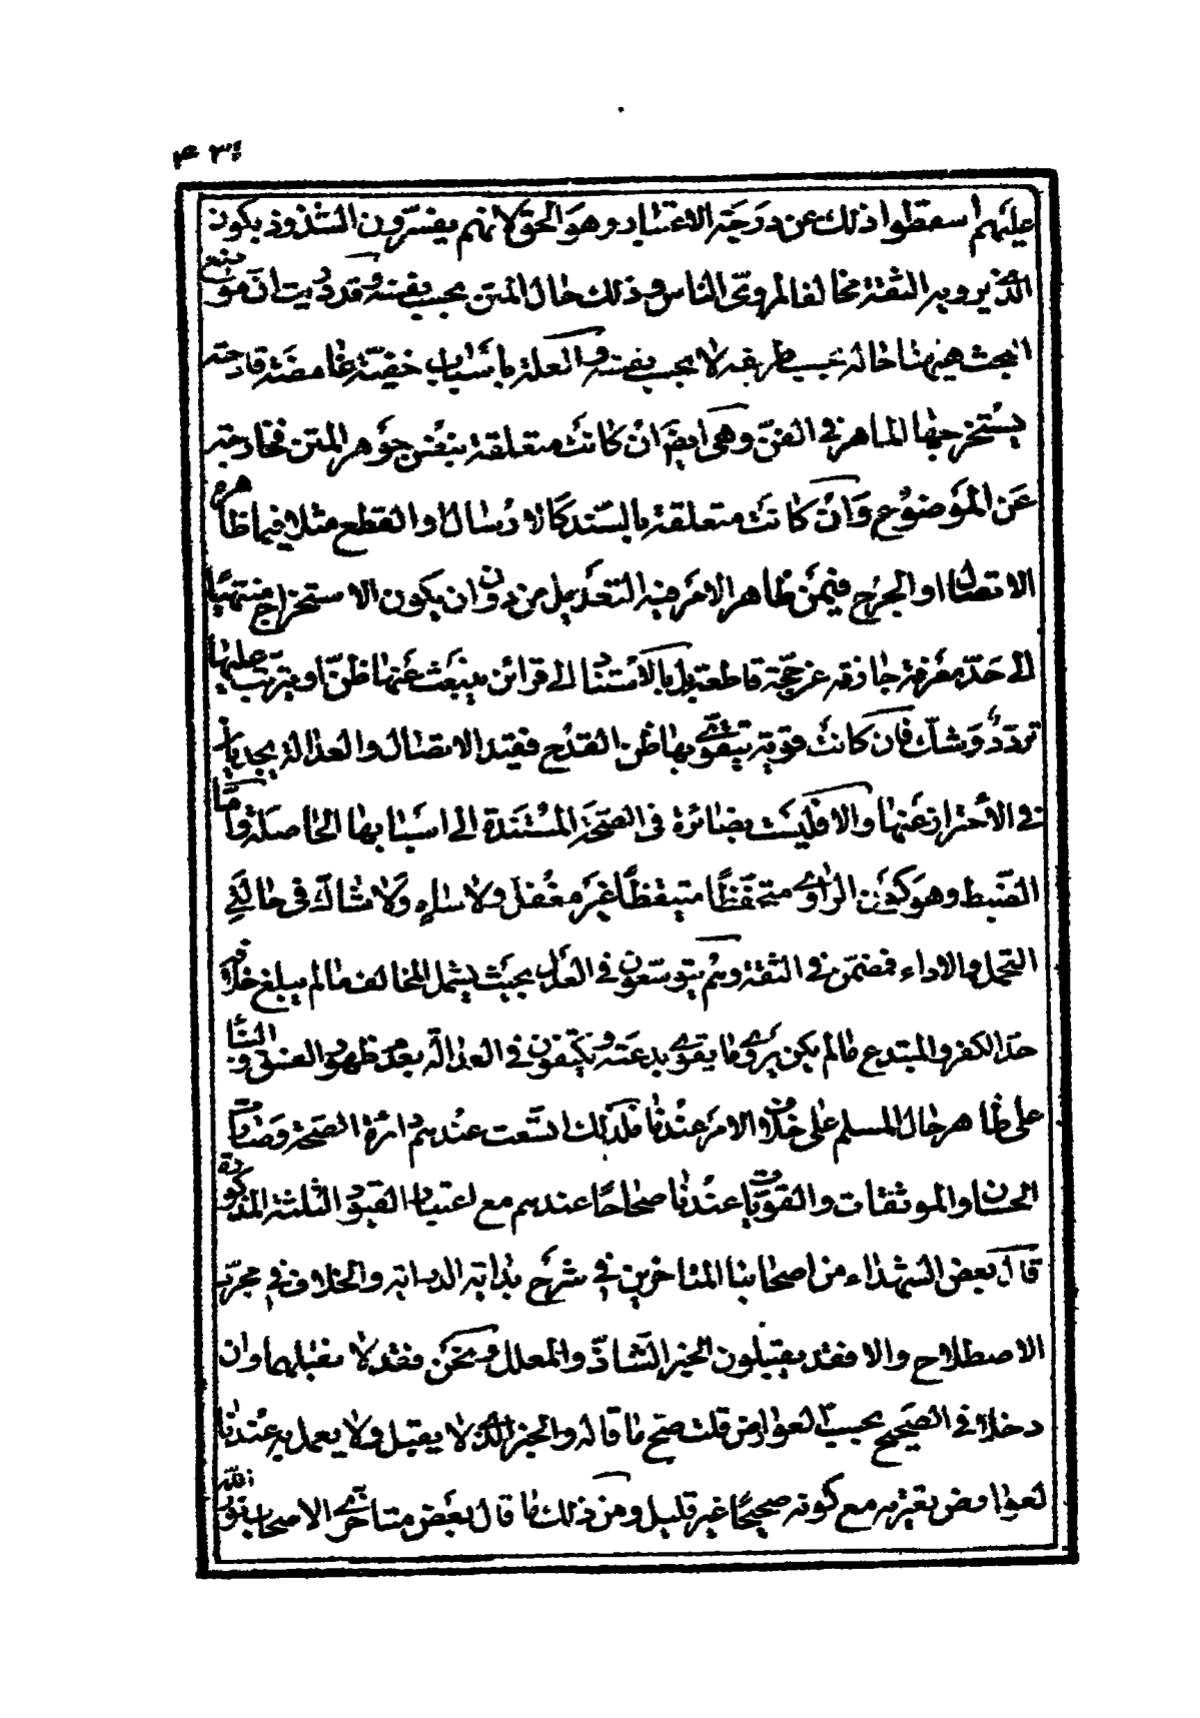 ٤٣
عليهم اسقطوا ذلك عن درجة الاعتبار وهو الحق لانهم يفسرون الشذوذ بكون
الذى يرويه الثقة مخالفا لمروى الناس وذلك حال المتن بحسب نفسه وقد دريت ان موضع
البحث هيهنا حاله بحسب طريقه لا بحسب نفسه والعلة باسباب خفية غامضة قادحة
يستخرجها الماهر فى الفن وهى ايضا ان كانت متعلقة بنفس جوهر المتن فخارجة
عن الموضوع وان كانت متعلقة بالسند كالارسال او القطع مثلا فيما ظاهره
الاتصال او الجرح فيمن ظاهر الامر فيه التعديل من دون ان يكون الاستخراج منتهيا
الى حد معرفة جازفه عن حجة قاطعة بل بالاستناد الى قرائن ينبعث عنها ظن او يترتب عليها
تردد وشك فان كانت قوية يتقوى بها ظن القدح فقيد الاتصال والعدالة يجديان
فى الاحتراز عنها والا فليست بضائرة فى الصحة المستندة الى اسبابها الحاصلة واما
الضبط وهو كون الراوى متحفظا متيقظا غير مغفل ولا ساه ولا شاك فى حالتى
التحمل والاداء فمضمن فى الثقة وهم يتوسعون فى العدل بحيث يشمل المخالف ما لم يبلغ خلافه
حد الكفر والمبتدع ما لم يكن يروى ما يقوى بدعته ويكتفون فى العدالة بعدم ظهور الفسق و البناء
على ظاهر حال المسلم على خلاف الامر عندنا فلذلك اتسعت عندهم دائرة الصحة وضاقت
الحسان والموثقات والقويات عندنا صحاحا عندهم مع اعتبار القيود الثلثة المذكورة
قال بعض الشهداء من اصحابنا المتاخرين فى شرح بداية الدراية والخلاف فى مجرد
الاصطلاح والا فقد يقبلون الخبر الشاذ والمعلل ونحن فقد لا نقبلهما وان
دخلا فى الصحيح بحسب العوارض قلت صح ما قاله والخبر الذى لا يقبل ولا يعمل به عندنا
لعوارض تعتريه مع كونه صحيحا غير قليل ومن ذلك ما قال بعض متاخرى الاصحاب